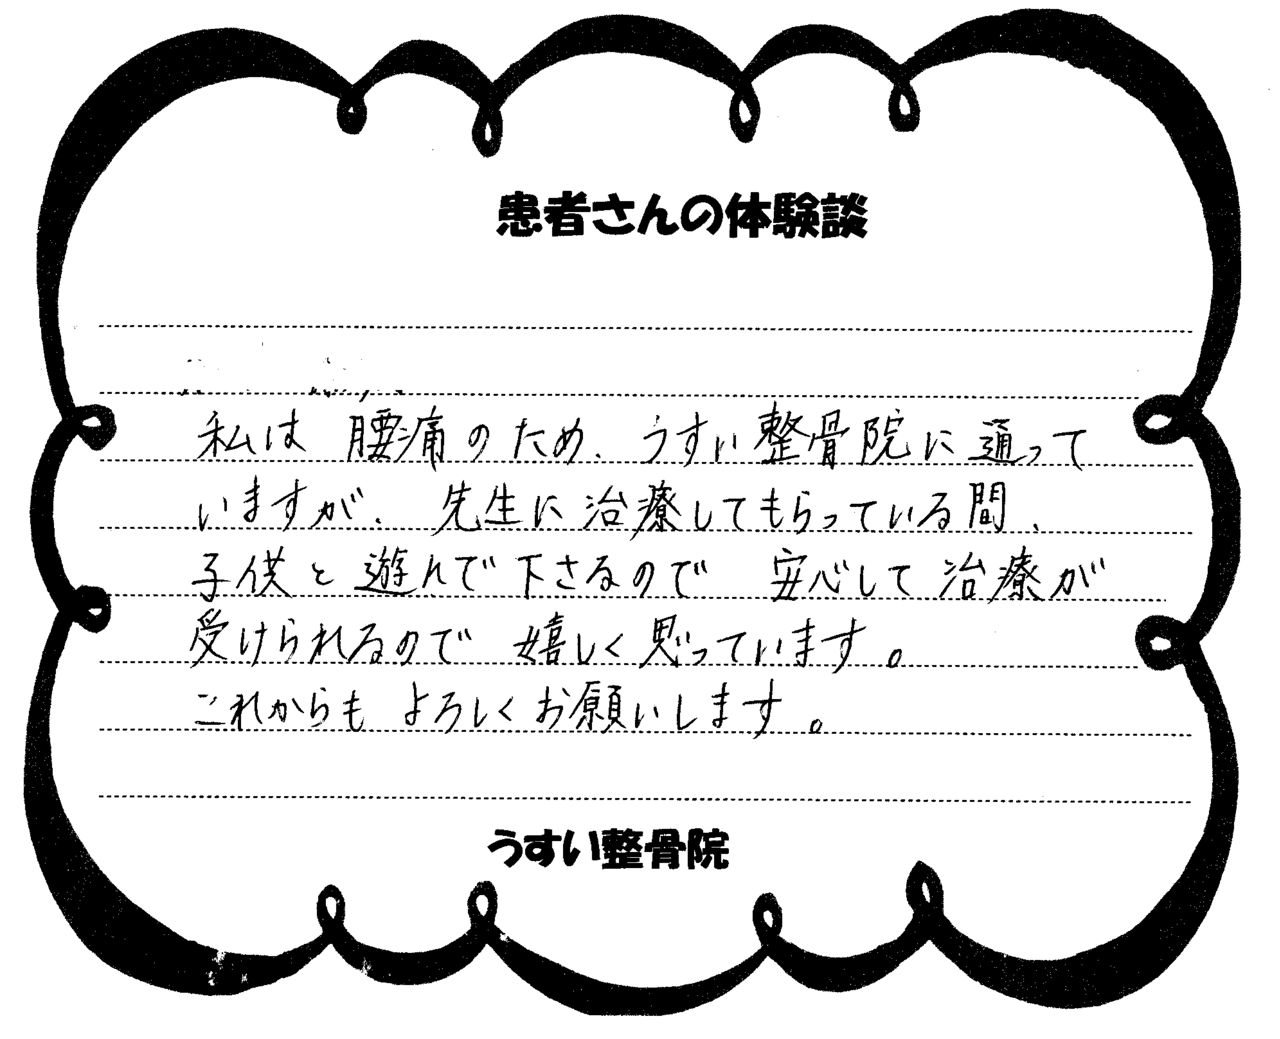 患者さんの体験談
私は 腰痛のため、うすい整骨院に通って
いますが、先生に治療してもらっている間、
子供と遊んで下さるので 安心して治療が
受けられるので 嬉しく思っています。
これからも よろしくお願いします。
うすい整骨院